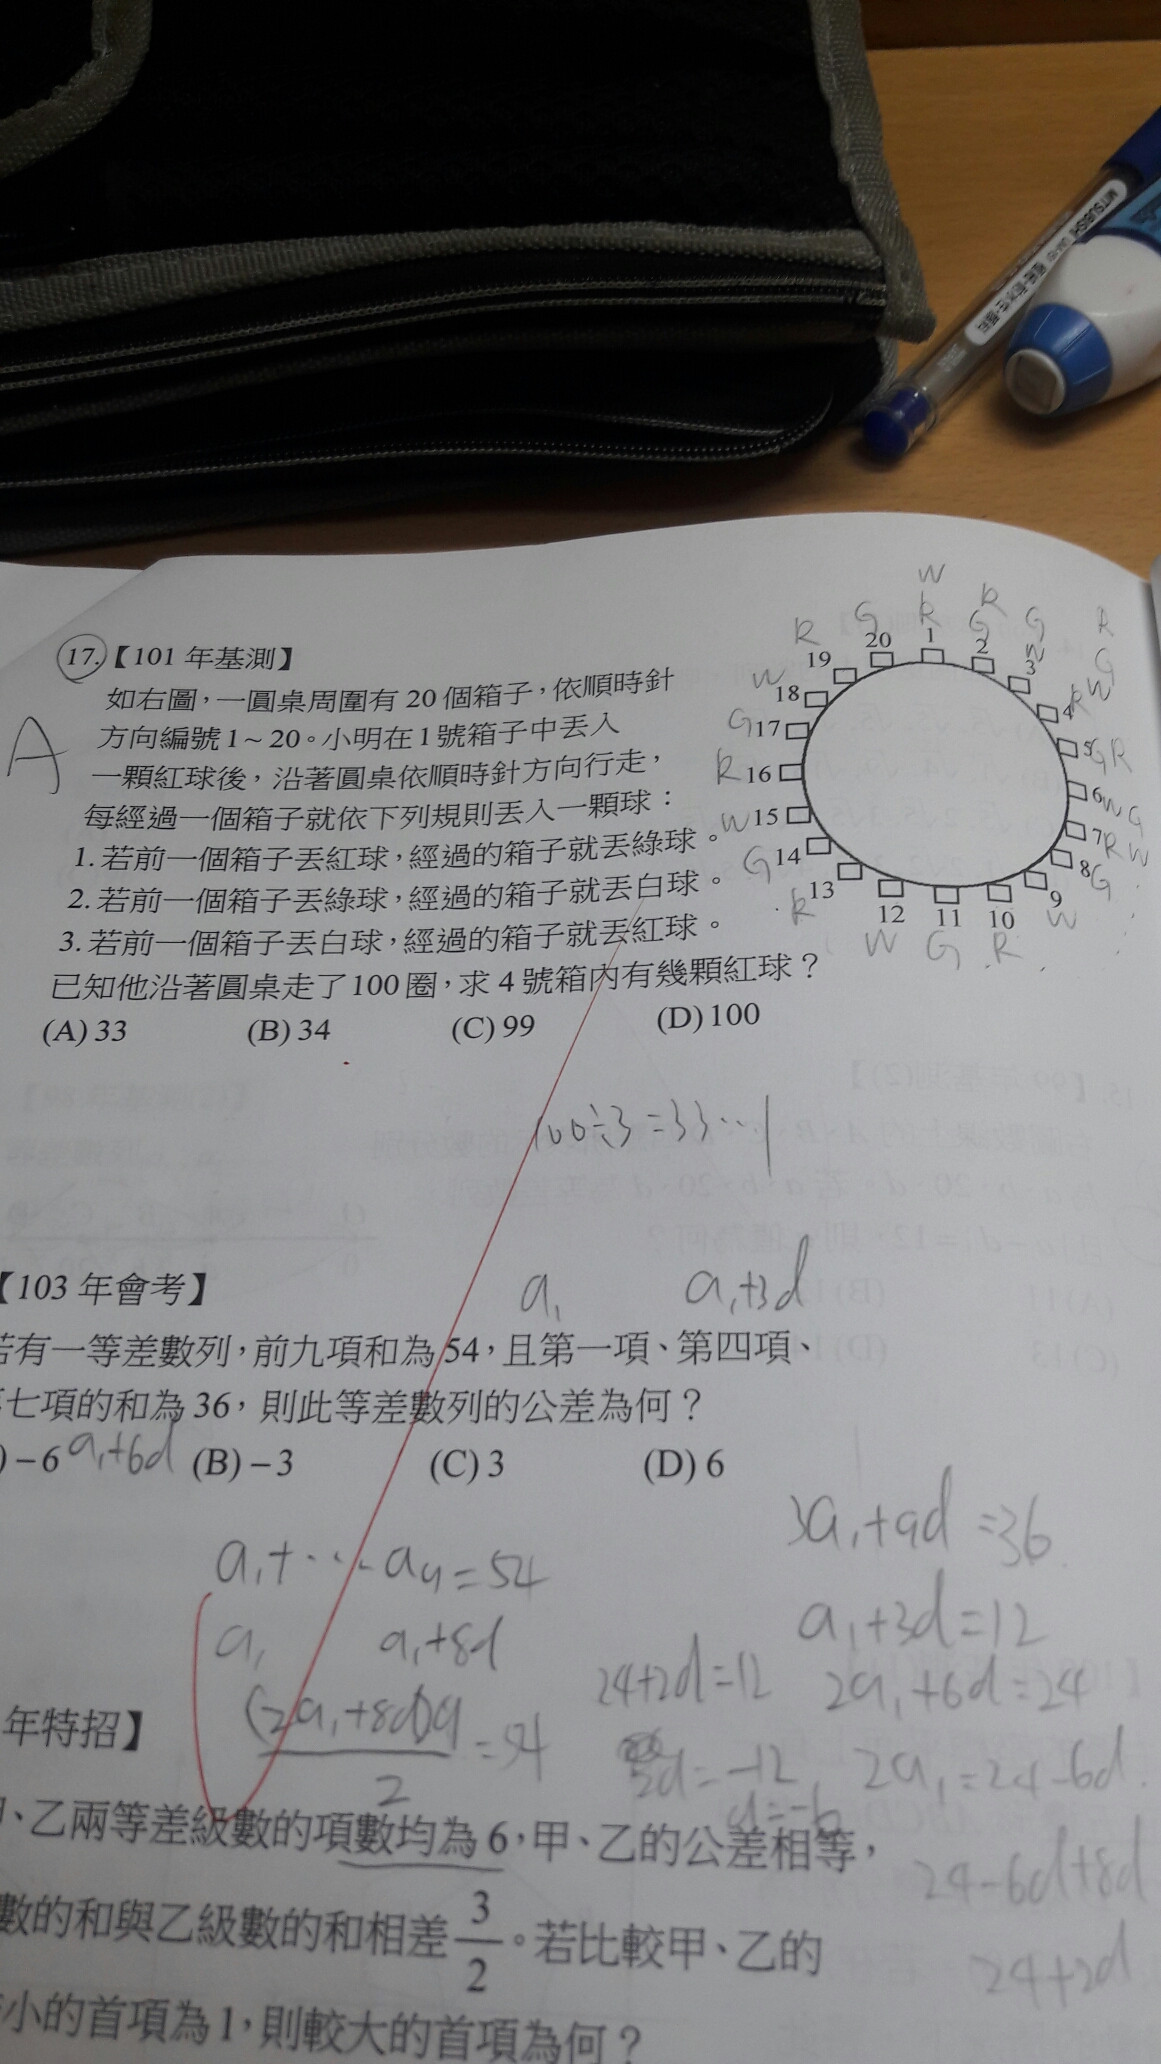 MITSUBISHI
17.【101 年基測】
如右圖，一圓桌周圍有 20 個箱子，依順時針
方向編號 1 ~ 20。小明在 1 號箱子中丟入
一顆紅球後，沿著圓桌依順時針方向行走，
每經過一個箱子就依下列規則丟入一顆球：
1. 若前一個箱子丟紅球，經過的箱子就丟綠球。
2. 若前一個箱子丟綠球，經過的箱子就丟白球。
3. 若前一個箱子丟白球，經過的箱子就丟紅球。
已知他沿著圓桌走了 100 圈，求 4 號箱內有幾顆紅球？
(A) 33 (B) 34 (C) 99 (D) 100
A
W
R G R R G R
19 20 1 2 3
W 18 4 R W
G 17 5 G R
R 16 6 W G
W 15 7 R W
G 14 8 G
R 13 12 11 10 9
W G R W
100÷3=33…1
【103 年會考】
a₁ a₁+3d
若有一等差數列，前九項和為 54，且第一項、第四項、
七項的和為 36，則此等差數列的公差為何？
) −6 a₁+6d (B) −3 (C) 3 (D) 6
3a₁+9d=36
a₁+…a₉=54
a₁+3d=12
a₁ a₁+8d
24+2d=12 2a₁+6d=24
年特招】
(2a₁+8d)9
2
=54
2d=−12 2a₁=24−6d
d=−6
、乙兩等差級數的項數均為 6，甲、乙的公差相等，
24−6d+8d
數的和與乙級數的和相差 3/2。若比較甲、乙的
24+2d
小的首項為 1，則較大的首項為何？